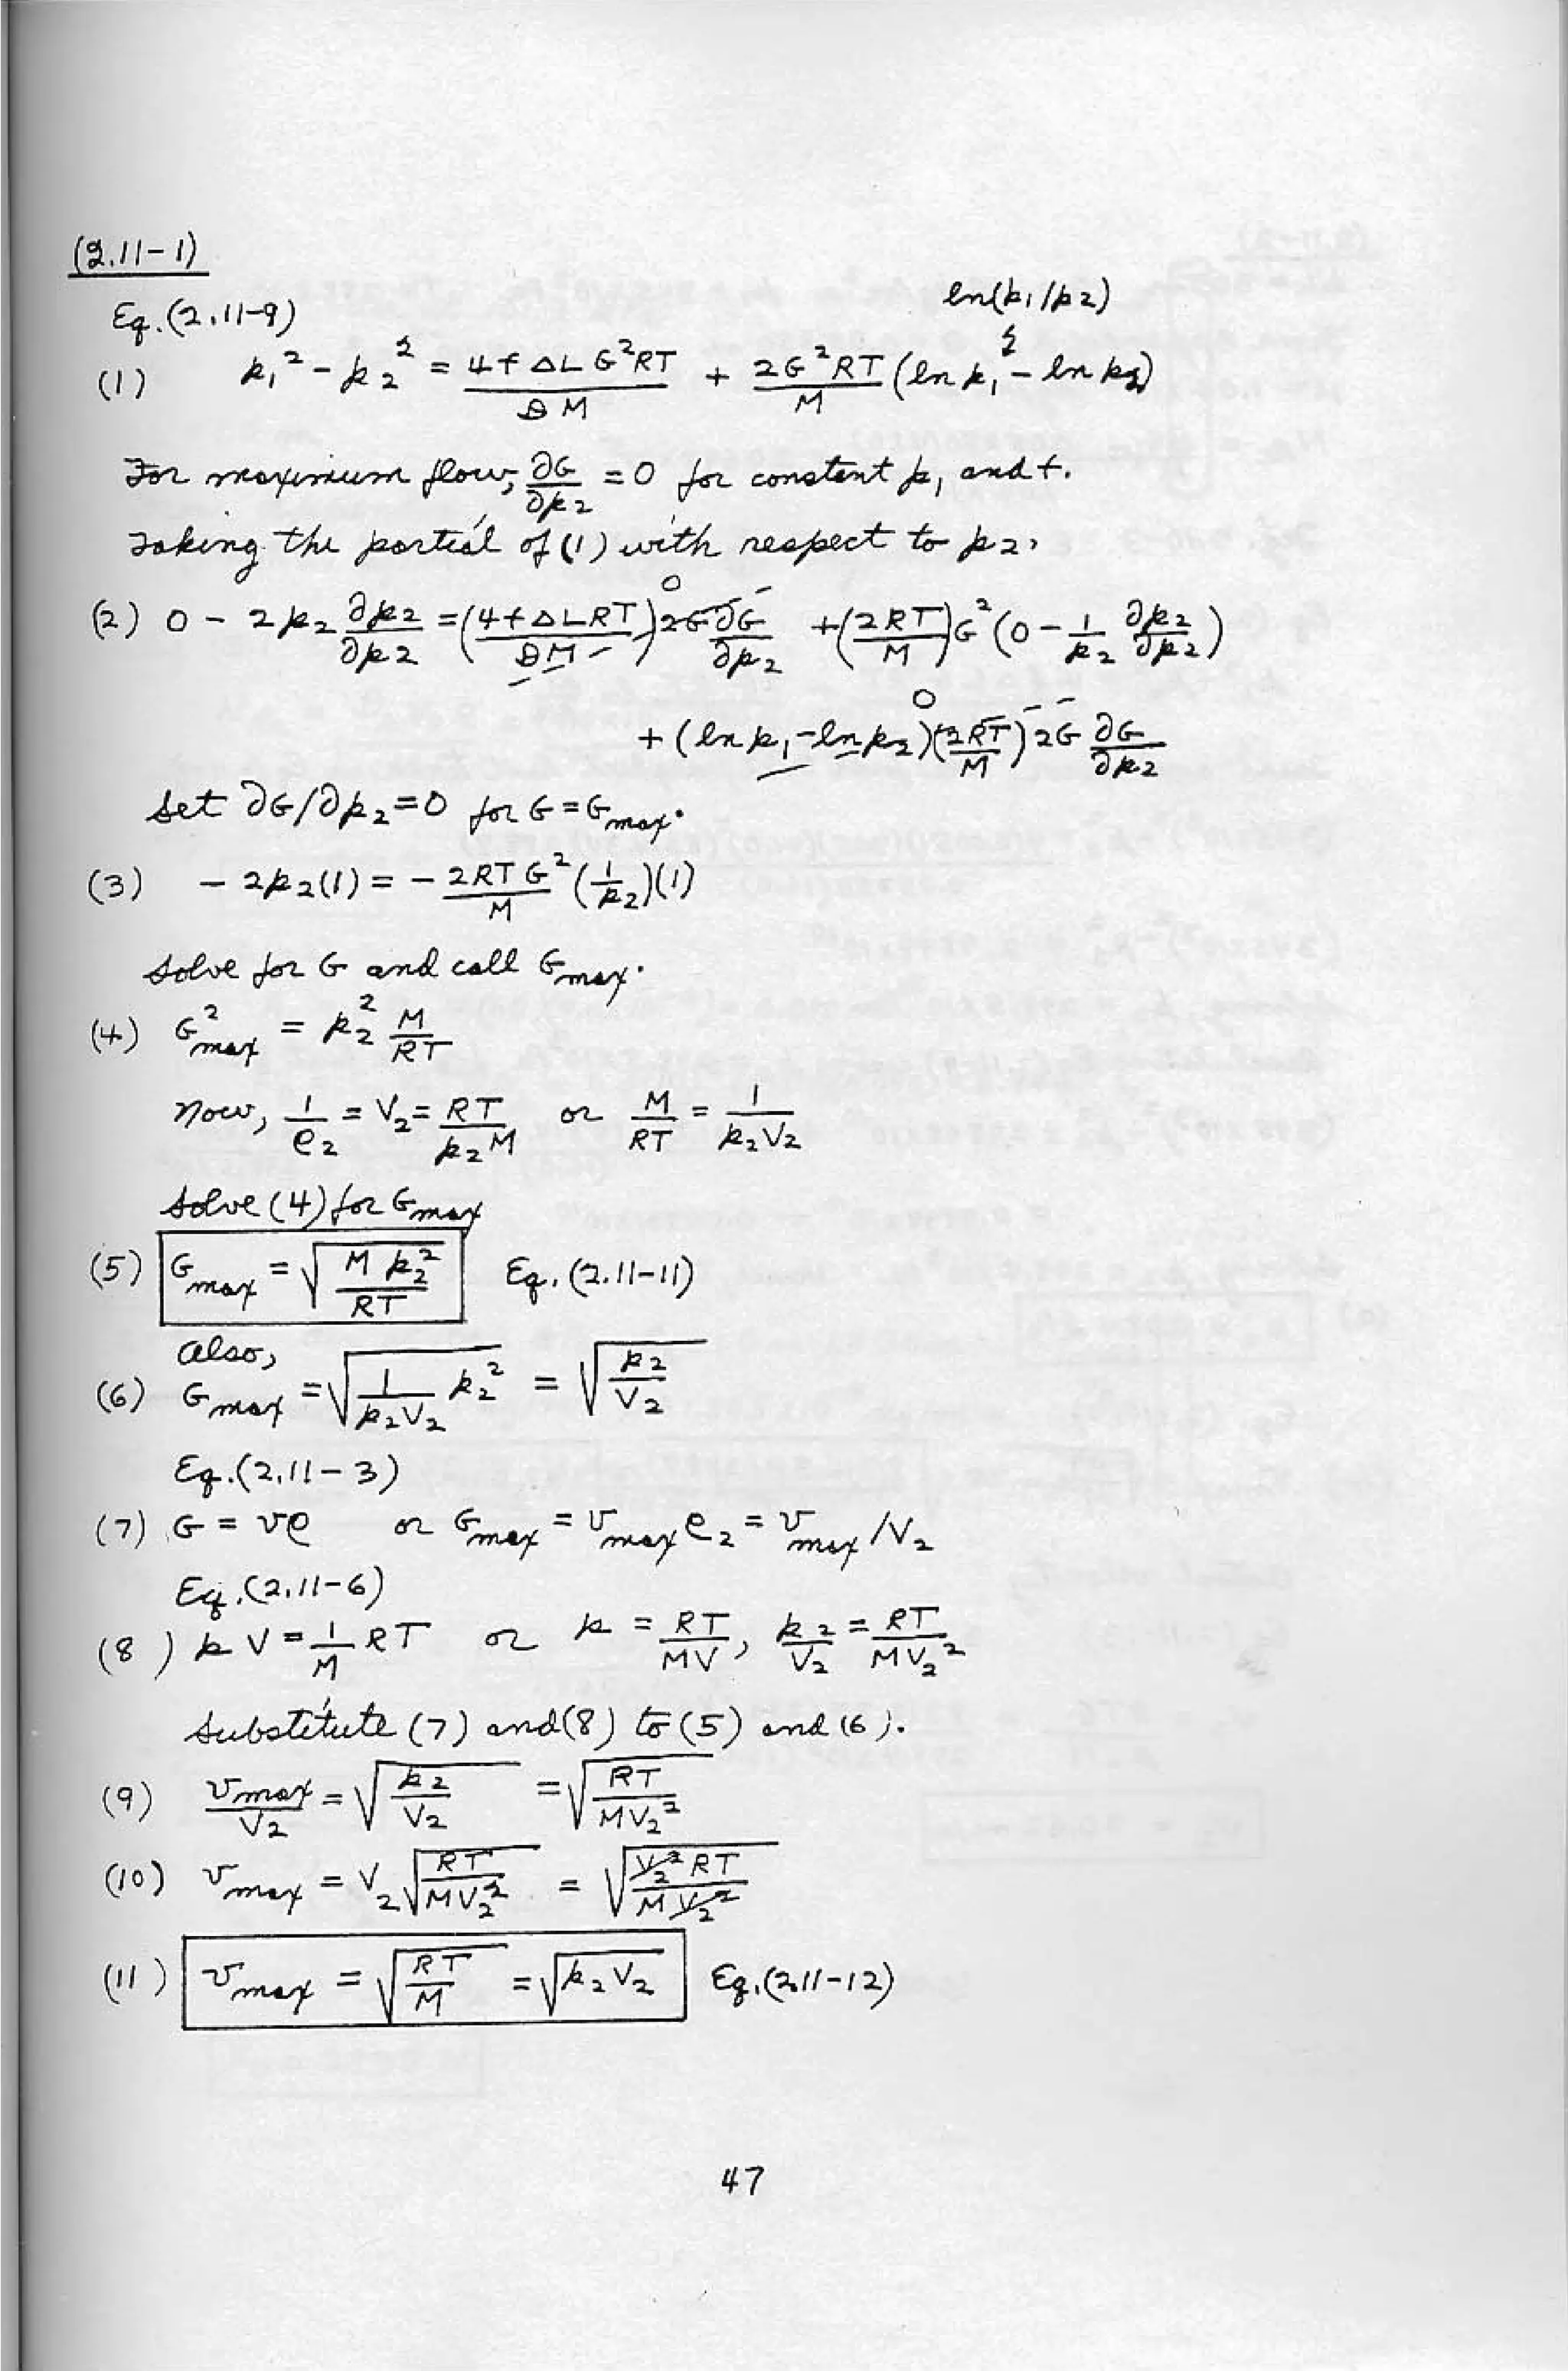 (2.11-1)
Eq.(2.11-9)
ln(p₁/p₂)
(1) p₁² - p₂² = 4fΔLG²RT/DM + 2G²RT/M (ln p₁ - ln p₂)
For maximum flow, ∂G/∂p₂ = 0 for constant p₁ and f.
Taking the partial of (1) with respect to p₂,
(2) 0 - 2p₂ ∂p₂/∂p₂ = (4fΔLRT/DM) 2G ∂G/∂p₂ + (2RT/M) G² (0 - 1/p₂ ∂p₂/∂p₂)
+ (ln p₁ - ln p₂)(2RT/M) 2G ∂G/∂p₂
Set ∂G/∂p₂ = 0 for G = Gmax.
(3) - 2p₂(1) = - 2RTG²/M (1/p₂)(1)
Solve for G and call Gmax.
(4) G²max = p₂² M/RT
Now, 1/ρ₂ = V₂ = RT/p₂M or M/RT = 1/p₂V₂
Solve (4) for Gmax
(5) Gmax = √(M p₂²/RT) Eq. (2.11-11)
Also,
(6) Gmax = √(1/p₂V₂ p₂²) = √(p₂/V₂)
Eq.(2.11-3)
(7) G = vρ or Gmax = vmax ρ₂ = vmax/V₂
Eq.(2.11-6)
(8) pV = 1/M RT or p = RT/MV, p₂/V₂ = RT/MV₂²
Substitute (7) and (8) to (5) and (6).
(9) vmax/V₂ = √(p₂/V₂) = √(RT/MV₂²)
(10) vmax = V₂√(RT/MV₂²) = √(V₂²RT/MV₂²)
(11) vmax = √(RT/M) = √(p₂V₂) Eq.(2.11-12)
47